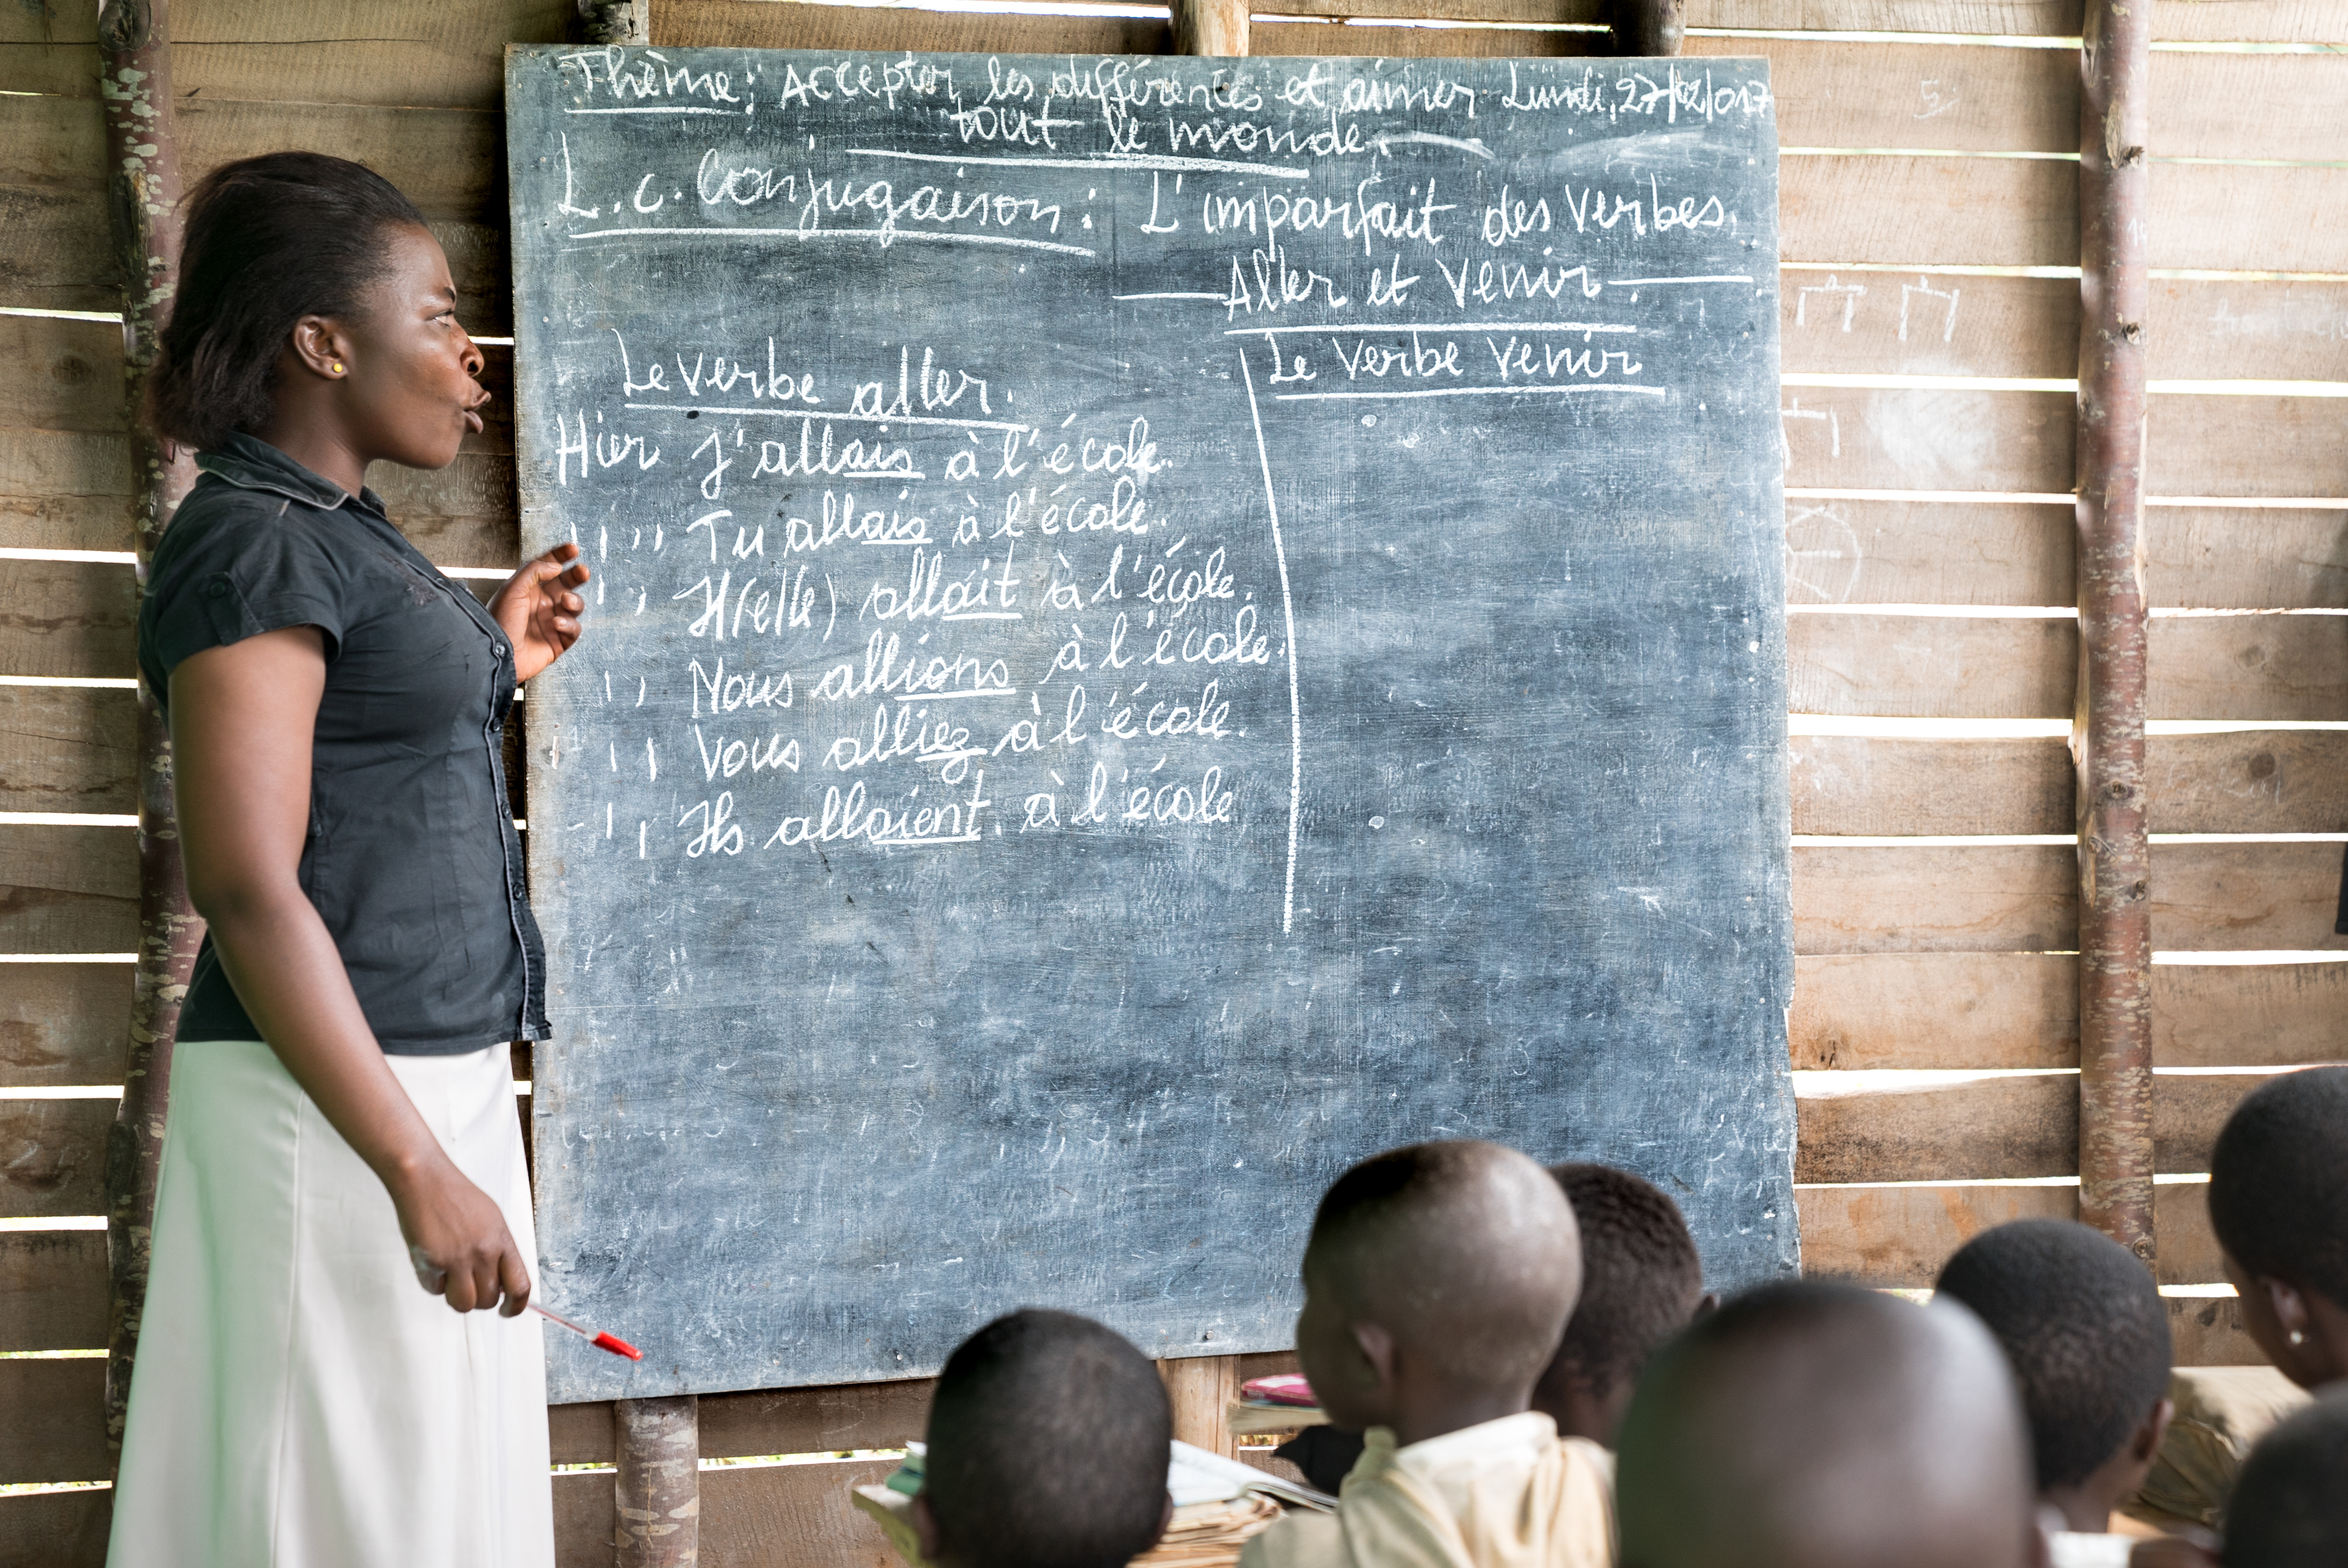 Thème: Accepter les différences et aimer Lundi, 27/02/017
tout le monde.
L.c. Conjugaison: L'imparfait des verbes
Aller et Venir.
Le verbe aller.
Hier j'allais à l'école.
" " Tu allais à l'école.
" Il(elle) allait à l'école.
" Nous allions à l'école.
" Vous alliez à l'école.
" Ils allaient à l'école
Le Verbe Venir